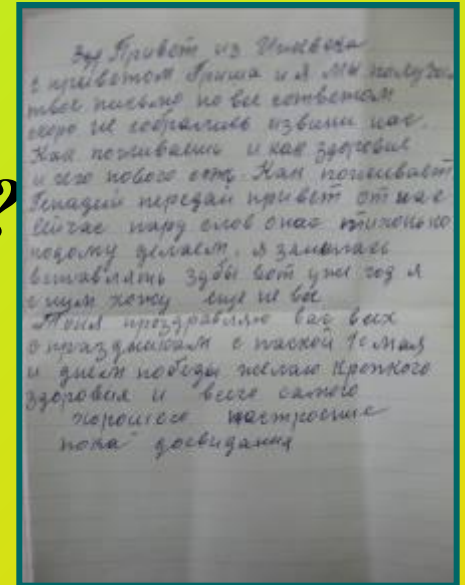 ?
Здр Привет из Ижевска
с приветом Гриша и я мы получили
твое письмо но все с ответом
скоро не собрались извини нас.
Как поживаеш и как здоровие
и чего нового есть. Как поживает
Генадий передай привет от нас
Сейчас пару слов о нас тихонько
подому делаем. я занялась
вставлять зубы вот уже год я
с нум хожу еще не все
Тоня проздравляю вас всех
с праздникам с паской 1е мая
и днем победы желаю крепкого
здоровия и всего самого
хорошего настроение
пока досвидания